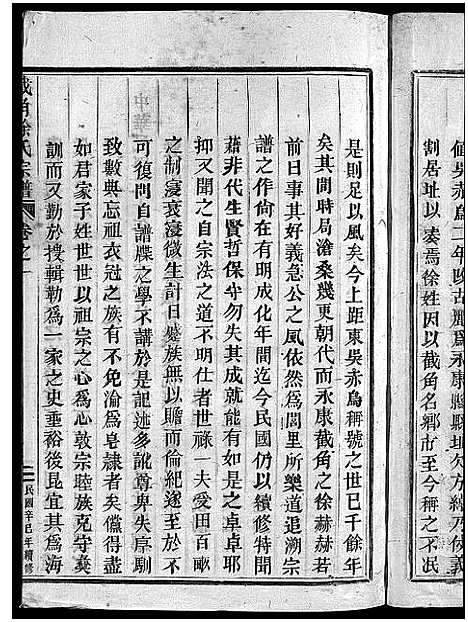 值吳赤烏二年改古麗爲永康縣縣北方經元侯義
割居址以
焉徐姓因以截角名鄉市至今稱之不泯
是則足以風矣今上距東吳赤烏稱號之世已千餘年
矣其間時局滄桑幾更朝代而永康截角之徐赫赫若
前日事其好義急公之風依然爲閭里所樂道追溯宗
譜之作尙在有明成化年間迄今民國仍以續修特開
藉非代生賢哲保守勿失其成就能有若是之卓卓耶
抑有感焉自宗法之道不明仕者世祿一夫受田百畝
之制寖衰寖微生計日蹙族無以贍而倫紀遂至於不
可復問自譜牒之學不講於是記述多訛尊卑失序馴
致數典忘祖衣冠之族有不免淪爲皂隸者矣儻得盡
如君家子姓世世以祖宗之心爲心敦宗睦族克守義
訓而又勤於搜輯勒爲一家之史垂裕後昆宜其爲海
截角徐氏宗譜
卷之一
二
民國辛巳年續修